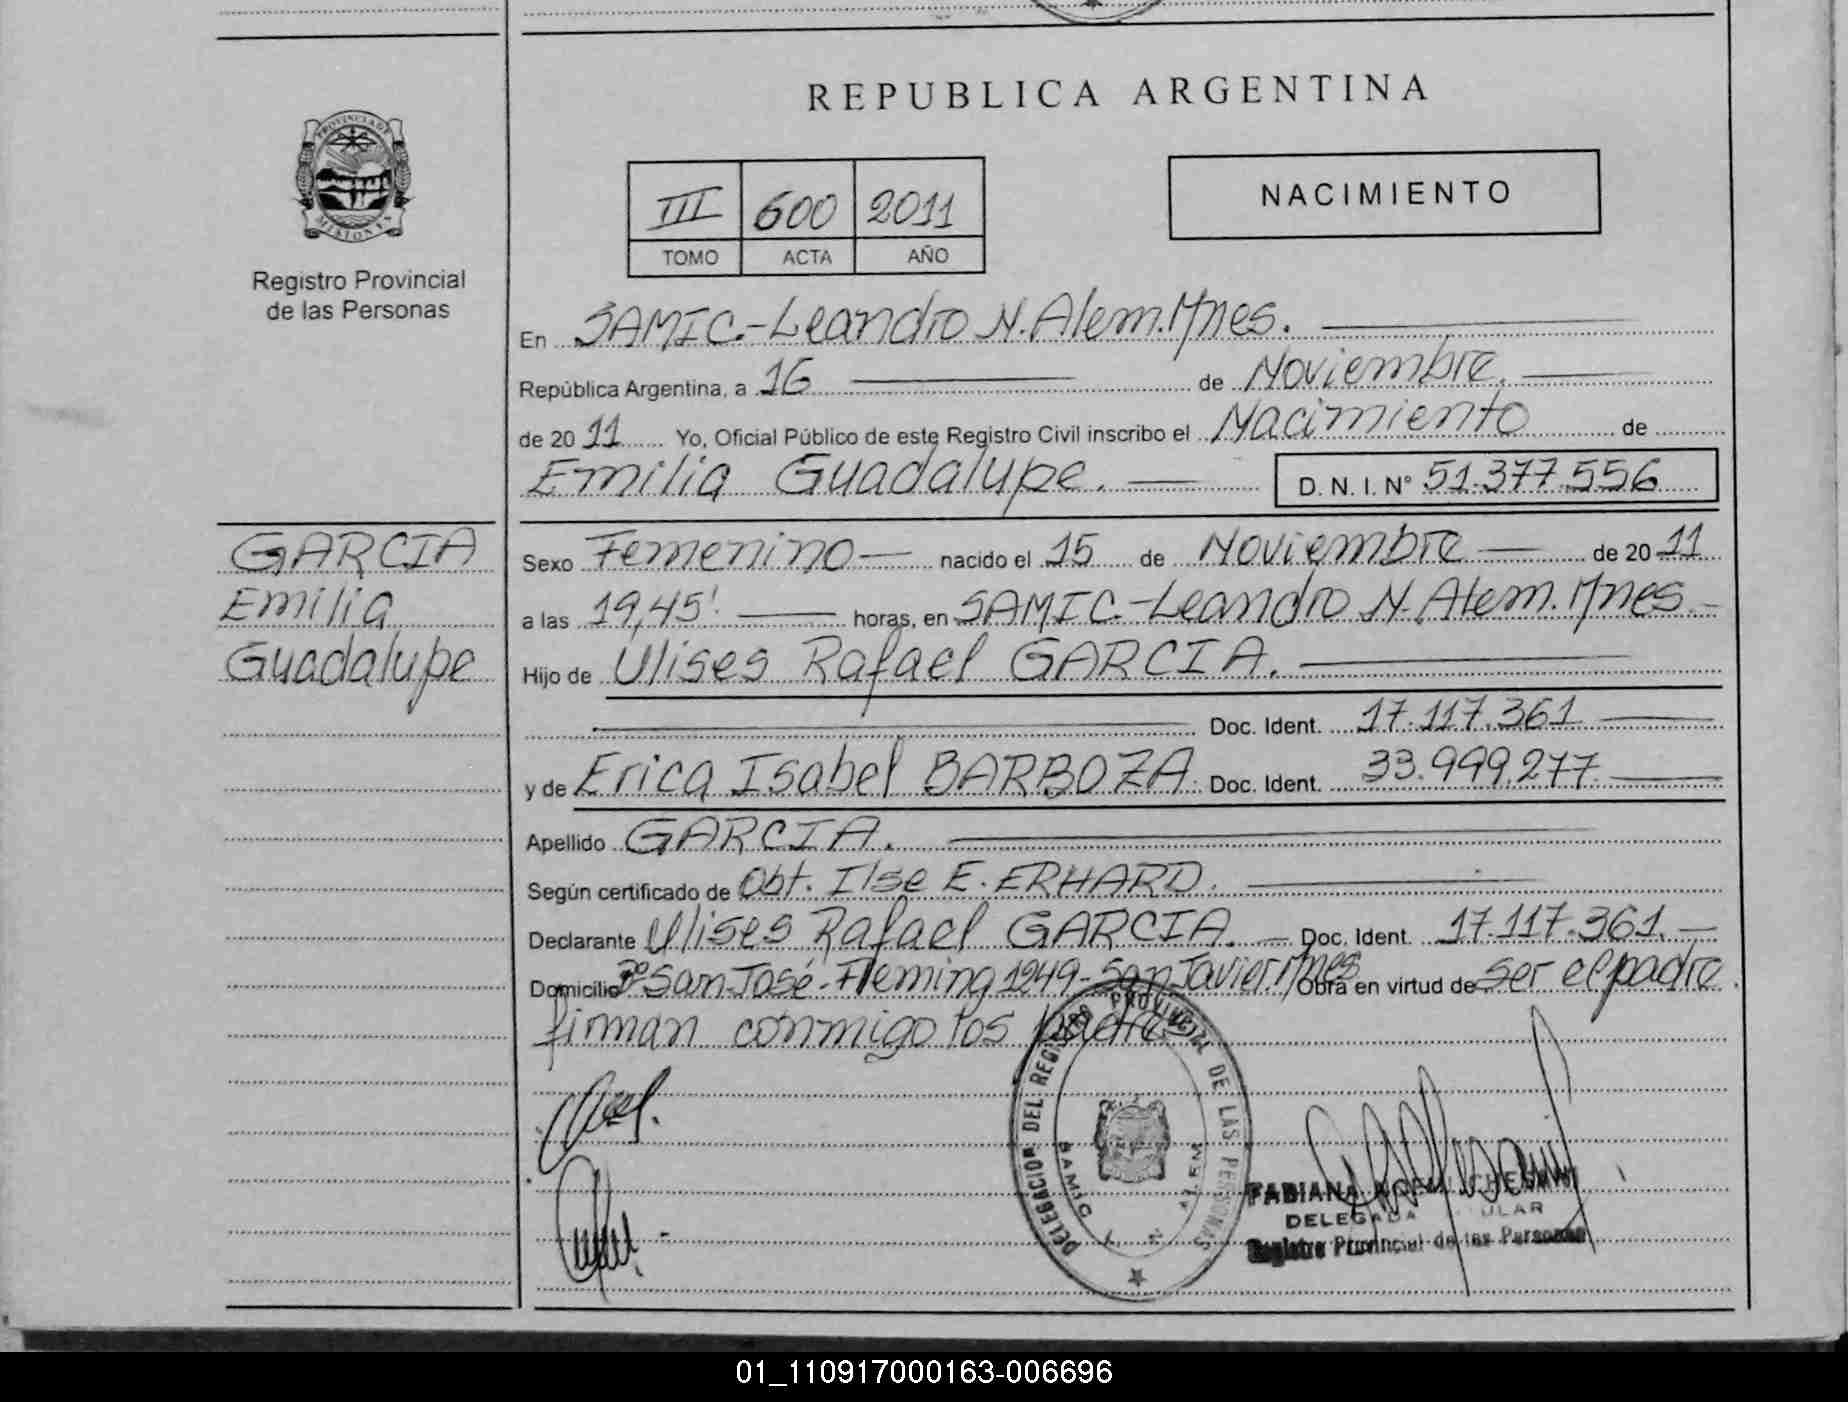 REPUBLICA ARGENTINA
PROVINCIA DE
MISIONES
Registro Provincial
de las Personas
III 600 2011
TOMO ACTA AÑO
NACIMIENTO
En SAMIC.-Leandro N. Alem. Mnes.
República Argentina, a 16 de Noviembre.
de 2011 Yo, Oficial Público de este Registro Civil inscribo el Nacimiento de
Emilia Guadalupe. D. N. I. N° 51.377.556
GARCIA
Emilia
Guadalupe
Sexo Femenino nacido el 15 de Noviembre de 2011
a las 19,45'. horas, en SAMIC.-Leandro N. Alem. Mnes
Hijo de Ulises Rafael GARCIA.
Doc. Ident. 17.117.361
y de Erica Isabel BARBOZA. Doc. Ident. 33.999.277.
Apellido GARCIA.
Según certificado de Obt. Ilse E. ERHARD.
Declarante Ulises Rafael GARCIA. Doc. Ident. 17.117.361.
Domicilio Bº San José-Fleming 1249-San Javier. Mnes Obra en virtud de ser el padre.
firman conmigo los padres
DELEGACION DEL REGISTRO PROVINCIAL DE LAS PERSONAS
SAMIC L N ALEM
FABIANA
DELEGADA TITULAR
Registro Provincial de las Personas
01_110917000163-006696